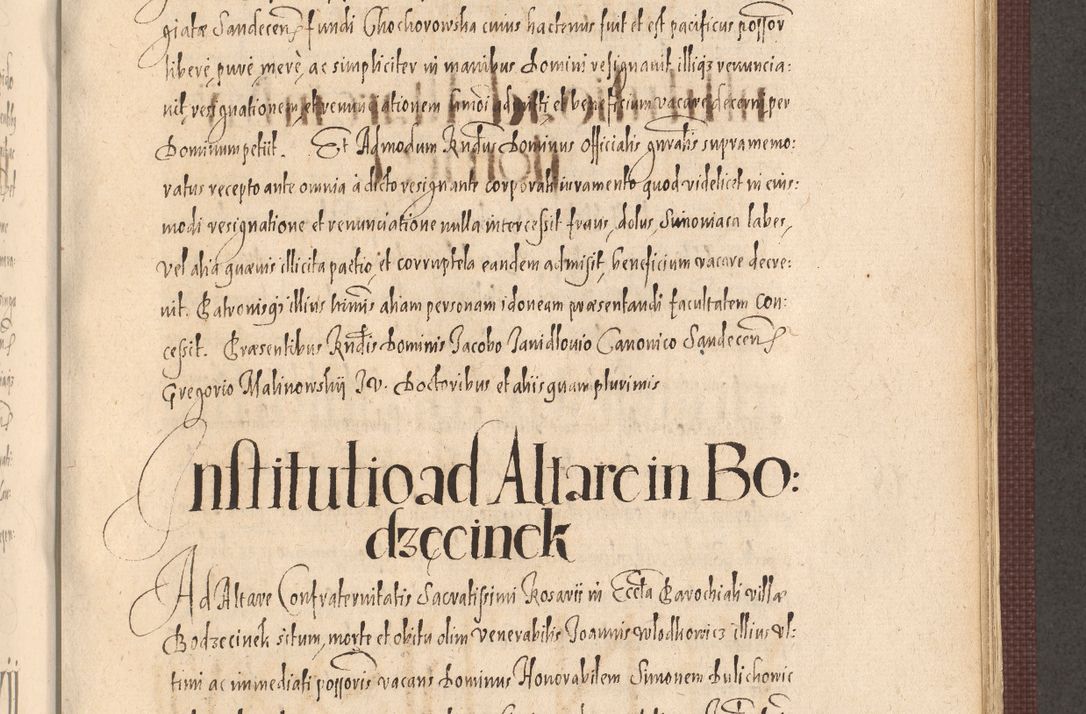 giatæ Sandecen fundi Chochorowska cuius hactenus fuit et est pacificus possor
liberè, purè, merè, ac simpliciter in manibus Domini resignavit, illiqz renuncia:
vit, resignationem et renunciationem hmoi admitti et beneficium vacare decerni per
Dominum petiit. Et Admodum Rndus Dominus Officialis gnralis supra memo:
ratus recepto ante omnia à dicto resignante corporali iuramento quod videlicet in eius:
modi resignatione et renunciatione nulla intercessit fraus, dolus, Simoniaca labes,
vel alia quævis illicita pactio, et corruptela eandem admisit, beneficium vacare decre:
vit. Patronisqz illius aliam personam idoneam præsentandi facultatem con:
cessit. Præsentibus Rndis Dominis Jacobo Janidlovio Canonico Sandecen
Gregorio Malinowskij I.V. Doctoribus et aliis quam plurimis
Institutio ad Altare in Bo:
dzęcinek
Ad Altare Confraternitatis Sacratissimi Rosarii in Eccta Parochiali villæ
Bodzęcinek situm, morte et obitu olim venerabilis Joannis Wlodkowicz illius ul:
timi ac immediati possoris vacans Dominus Honorabilem Simonem Dulichowic